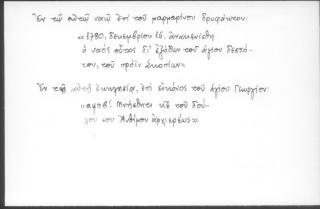 Ἐν τῷ αὐτῷ ναῷ ἐπὶ τοῦ μαρμαρίνου δρυφάκτου:
«1780, δεκεμβρίου 16. ἀνακενίσθη
ὁ ναὸς οὗτος δι' ἐξόδων τοῦ ἁγίου δεσπό-
του, τοῦ πρώην Σκοπίων»
Ἐν τῇ αὐτῇ ἐκκλησίᾳ, ἐπὶ εἰκόνος τοῦ ἁγίου Γεωργίου:
«αψπβ! Μνήσθητι κ̅ε̅ τοῦ δού-
λου σου Ἀνθίμου ἀρχιερέως».